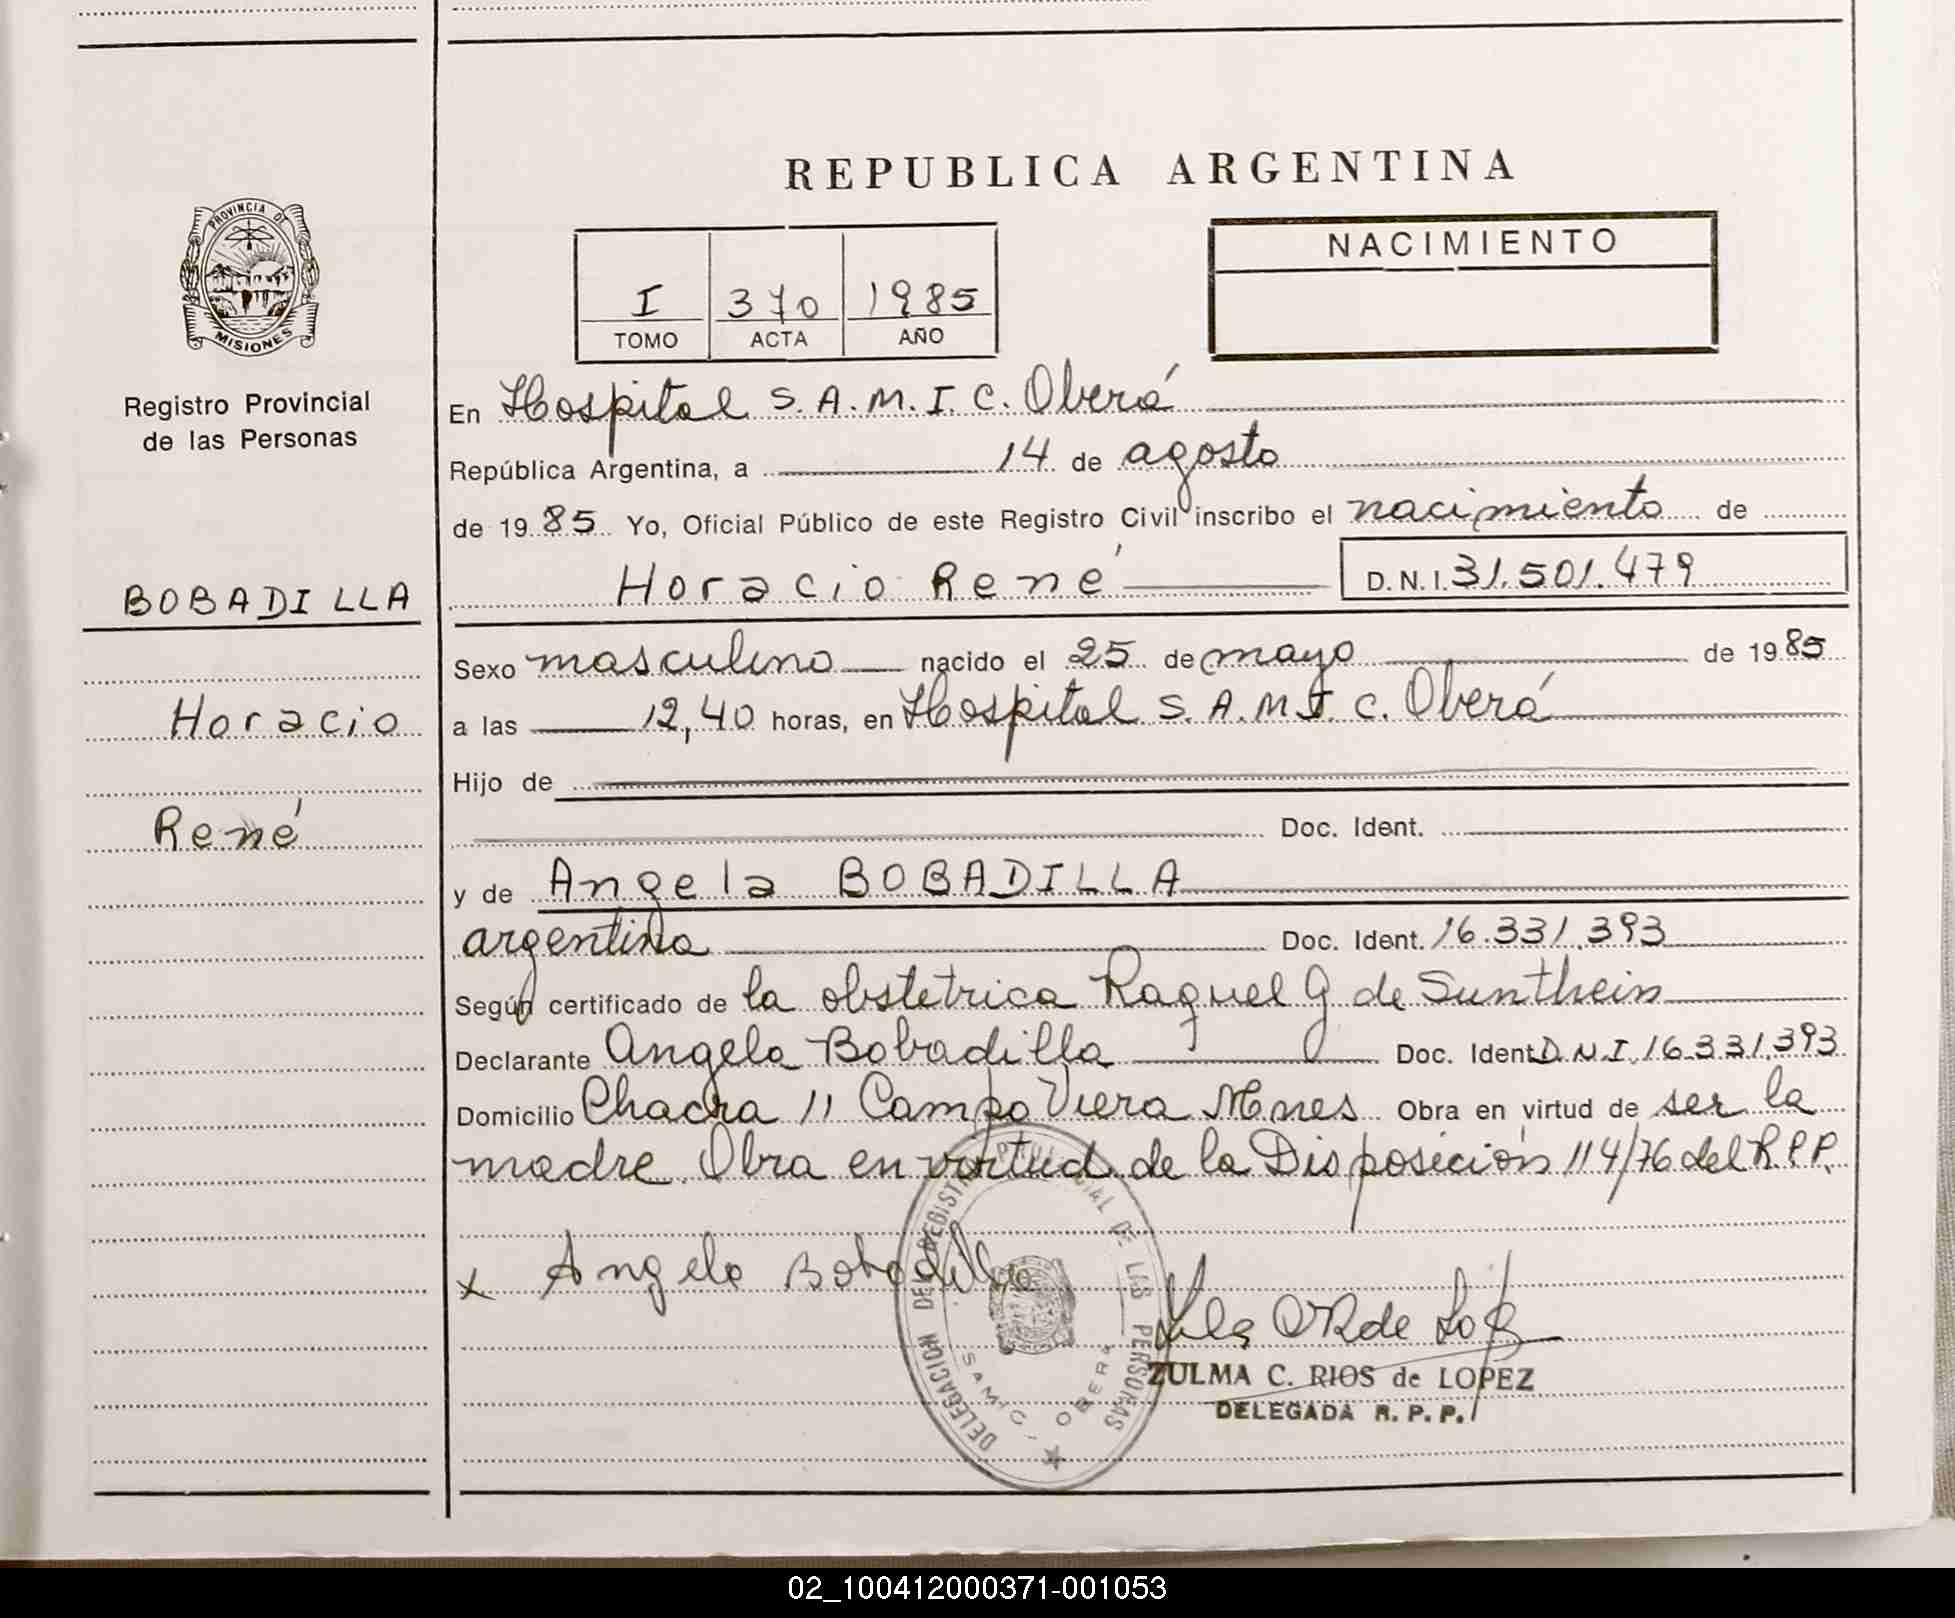 REPUBLICA ARGENTINA
PROVINCIA DE
MISIONES
Registro Provincial
de las Personas
BOBADILLA
Horacio
René
NACIMIENTO
I 370 1985
TOMO ACTA AÑO
En Hospital S.A.M.I.C. Oberá
República Argentina, a 14 de agosto
de 1985 Yo, Oficial Público de este Registro Civil inscribo el nacimiento de
Horacio René D.N.I. 31.501.479
Sexo masculino nacido el 25 de mayo de 1985
a las 12,40 horas, en Hospital S.A.M.I.C. Oberá
Hijo de
Doc. Ident.
y de Angela BOBADILLA
argentina Doc. Ident. 16.331.393
Según certificado de la obstetrica Raquel G de Sunthein
Declarante Angela Bobadilla Doc. Ident. D.N.I. 16.331.393
Domicilio Chacra 11 Campo Viera Mnes Obra en virtud de ser la
madre. Obra en virtud de la Disposición 114/76 del R.P.P.
x Angela Bobadilla
DELEGACION DEL REGISTRO PROVINCIAL DE LAS PERSONAS
SAMIC - OBERA
ZULMA C. RIOS de LOPEZ
DELEGADA R. P. P.
02_100412000371-001053